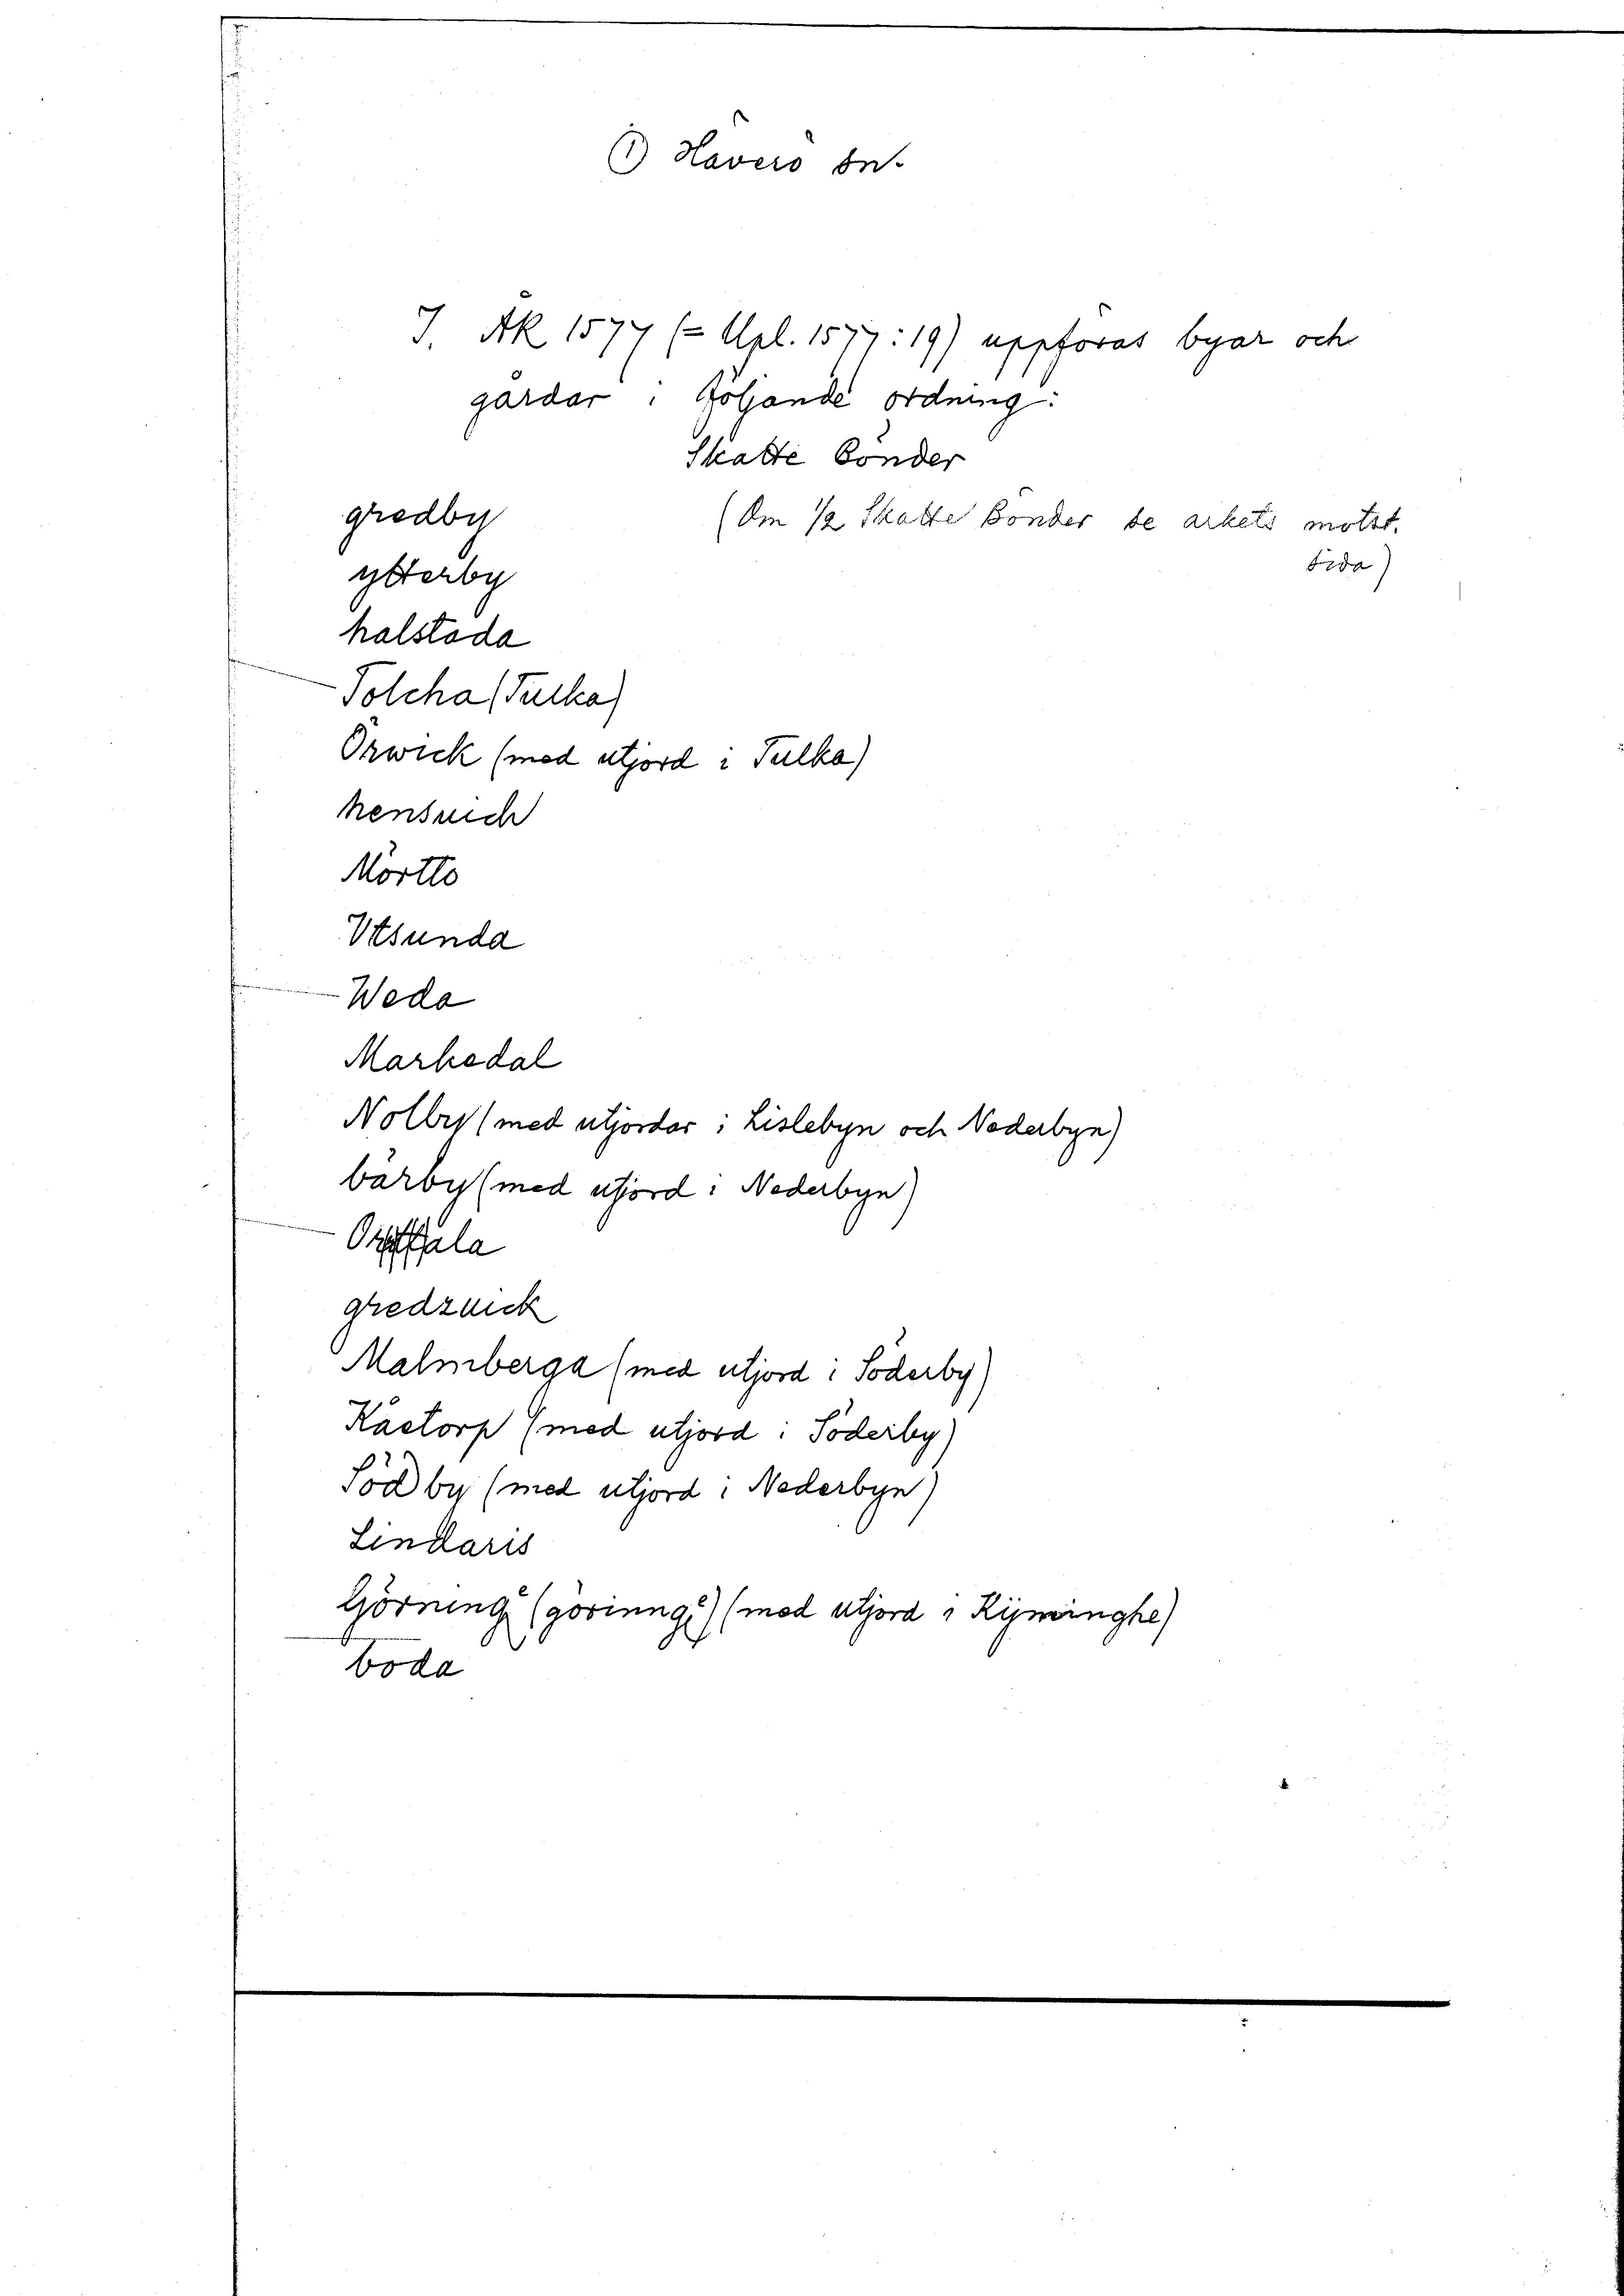 1) Häverö sn.
I ÄK 1577 (= Upl. 1577:19) uppföras byar och
gårdar i följande ordning:
Skatte Bönder
gredby (Om 1/2 Skatte Bönder se arkets motst.
sida)
ytterby
halstada
Tolcha (Tulka)
Örwick (med utjord i Tulka)
hensuich
Mortto
Vtsunda
Weda
Markedal
Nolby (med utjordar i Lislebyn och Nederbyn)
bärby (med utjord i Nederbyn)
gredzuick
Malmberga (med utjord i Söderby)
Kactorp (med utjord i Söderby)
Södby (med utjord i Nederbyn)
Lindaris
Görning (göriung?) (med utjord i Rijminghe)
boda